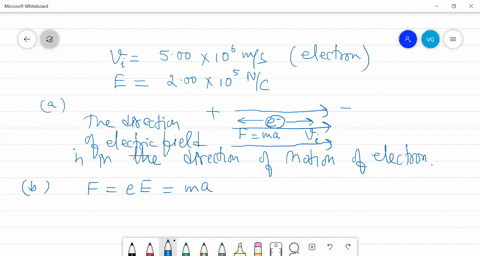 Microsoft Whiteboard
VG
Vi = 5.00 × 10⁶ m/s (electron)
E = 2.00 × 10⁵ N/C
(a) The direction of electric field is in the direction of motion of electron.
+ e⁻ −
F = ma Vi
(b) F = eE = ma